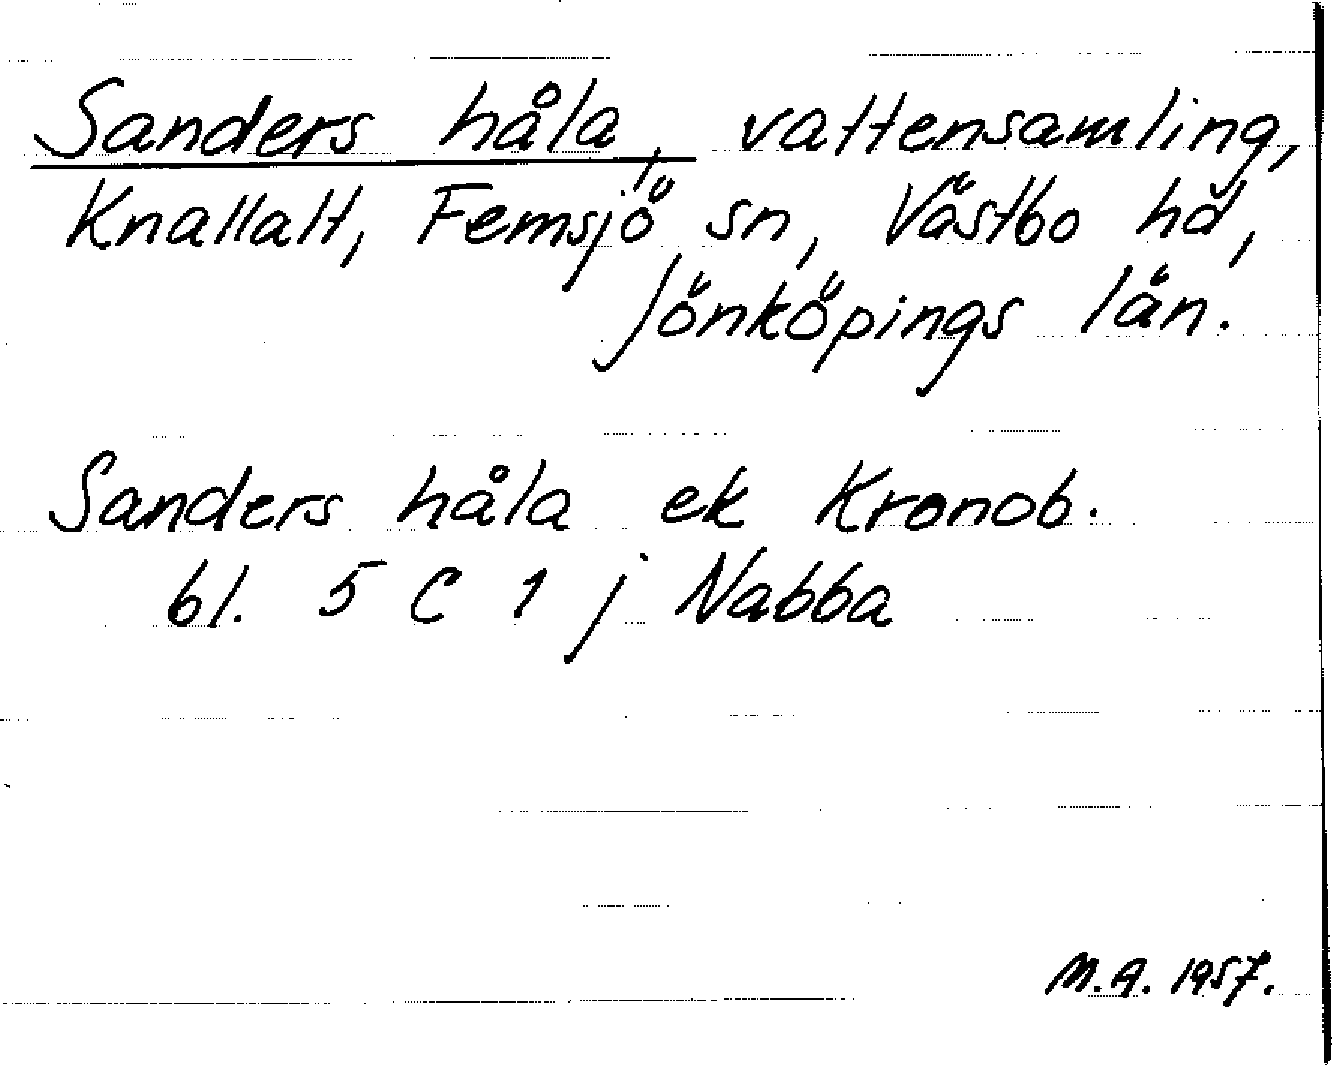 Sanders håla, vattensamling,
Knallalt, Femsjö sn, Västbo hd,
Jönköpings län.
Sanders håla ek Kronob.
bl. 5 C 1 j Nabba
M.A. 1957.